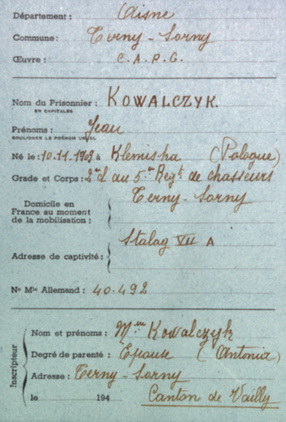 Département: Aisne
Commune: Terny-Sorny
Œuvre: C.A.P.G.
Nom du Prisonnier: KOWALCZYK.
EN CAPITALES
Prénoms: Jean
SOULIGNER LE PRÉNOM USUEL
Né le: 10.11.1908 à Klenisha (Pologne)
Grade et Corps: 2e Cl au 5e Regt de chasseurs
Domicile en
France au moment
de la mobilisation: Terny-Sorny
Stalag VII A
Adresse de captivité:
No Mle Allemand: 40-492
Inscripteur
Nom et prénoms: Mme Kowalczyk
Degré de parenté: Epouse (Antonia)
Adresse: Terny-Sorny
le 194 Canton de Vailly